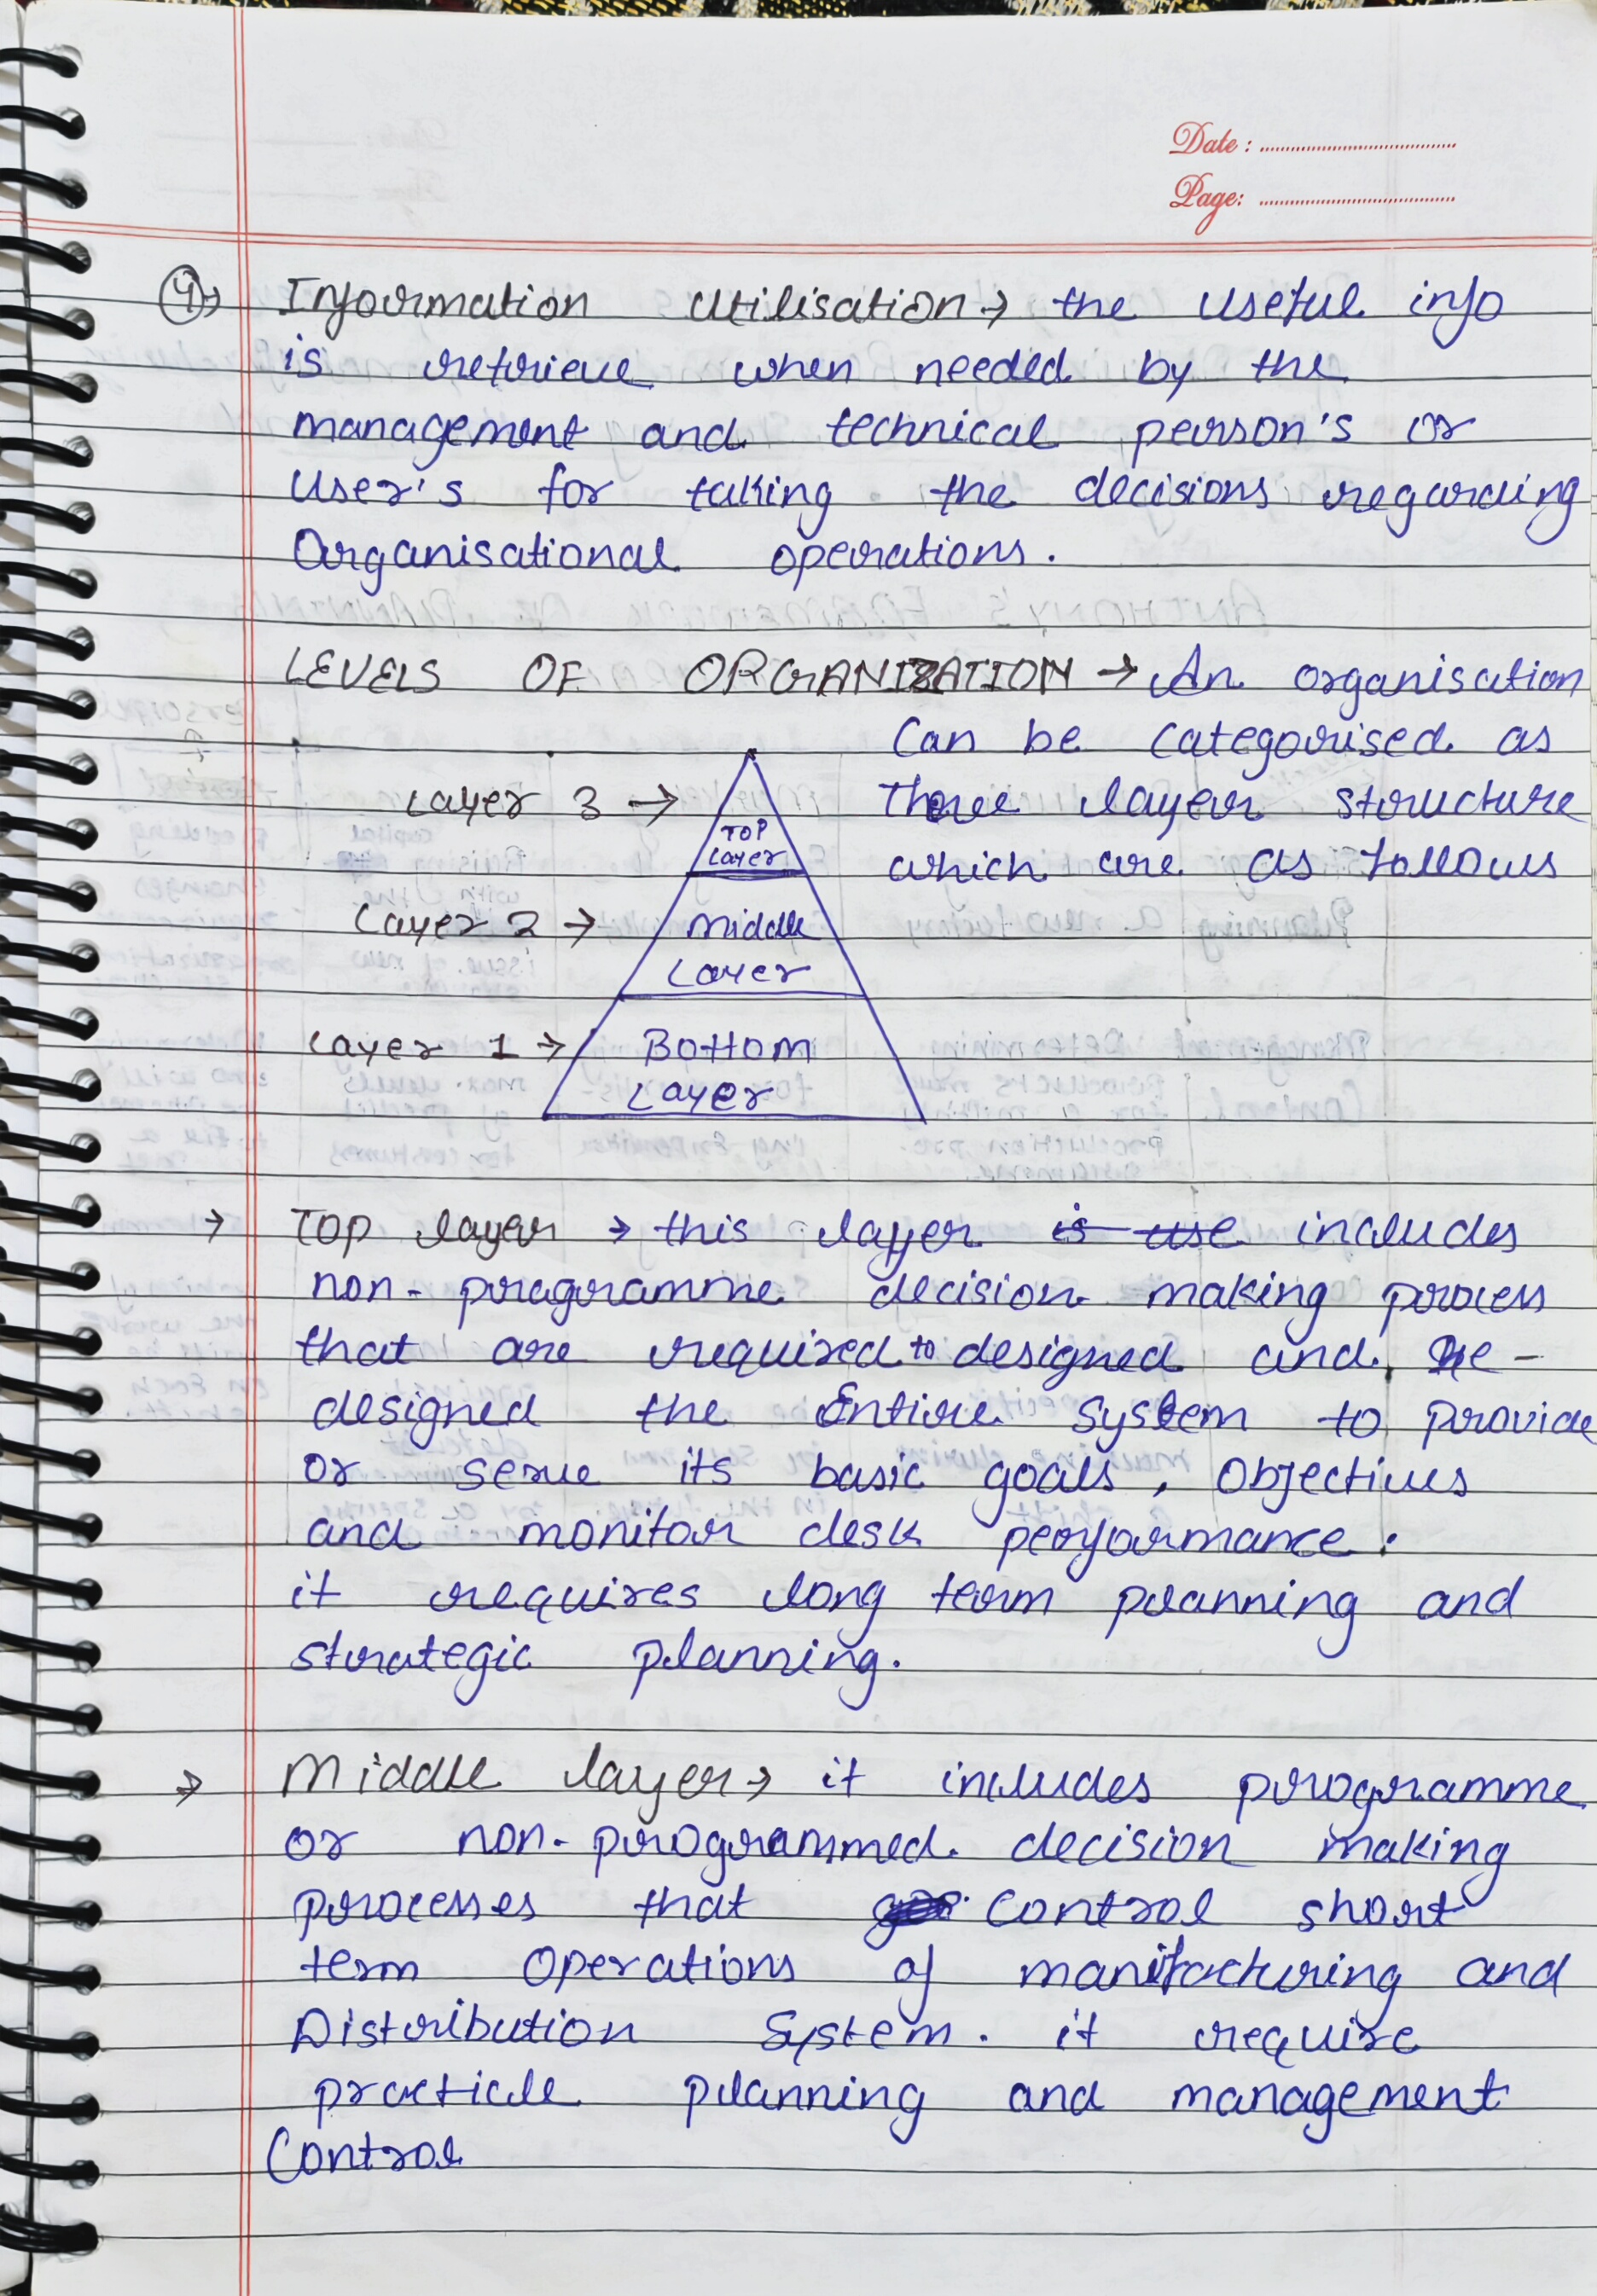 Date :
Page:
④→ Information utilisation → the useful info
is retrieve when needed by the
management and technical person's or
User's for taking the decisions regarding
Organisational operations.
LEVELS OF ORGANIZATION → An organisation
Can be categorised as
Layer 3 → Three layer structure
TOP
Layer
which are as follows
Layer 2 → Middle
Layer
Layer 1 → Bottom
Layer
→ TOP layer → this layer is use includes
non-programme decision making process
that are required to designed and Re-
designed the Entire system to provide
or serve its basic goals, Objectives
and monitor desk performance.
it requires long term planning and
strategic planning.
→ Middle layer → it includes programme
or non-programmed decision making
processes that control short
term Operations of manifacturing and
Distribution System. it require
practicle planning and management
Control